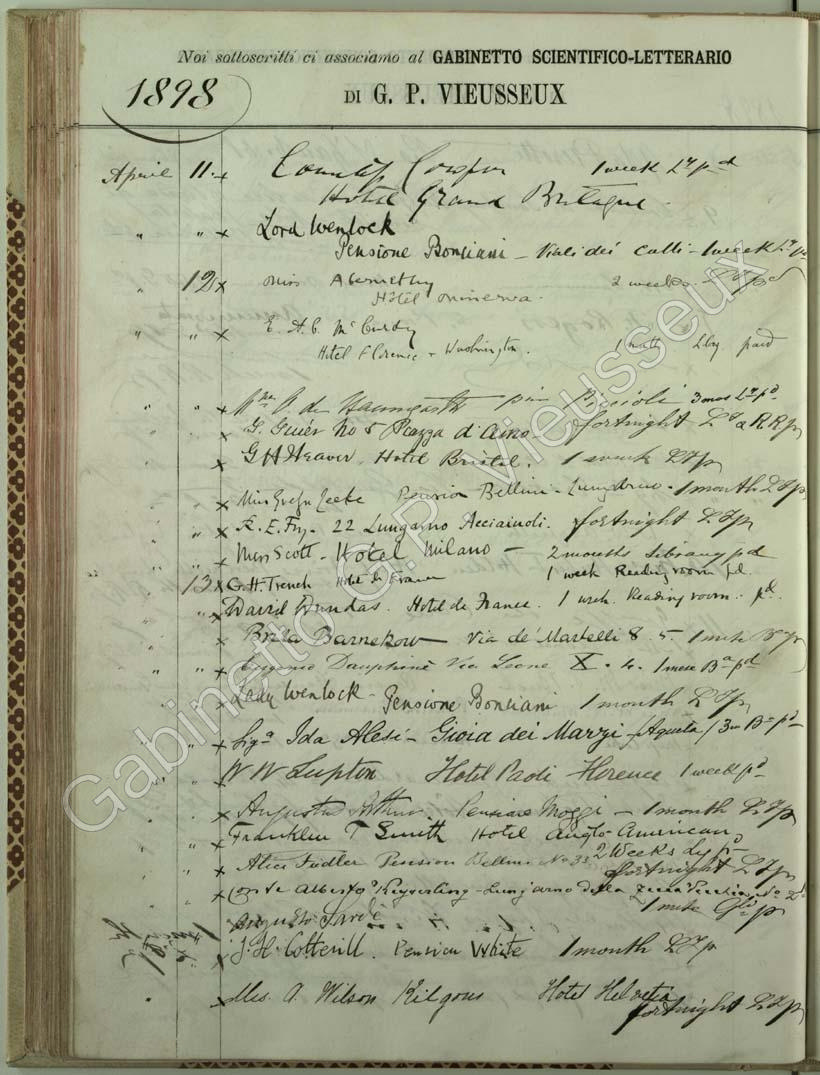 Noi sottoscritti ci associamo al GABINETTO SCIENTIFICO-LETTERARIO
1898
DI G. P. VIEUSSEUX
April 11. x County Cowper 1 week Ly pd
Hotel Grand Bretagne.
" " x Lord Wenlock
Pensione Bonciani - Viali dei Colli - 1 week Ly pd
" 12 x Miss Abernethy 2 weeks. Ly pd
Hôtel Minerva.
" " x E. A. C. McCurdy
Hotel Florence & Washington. 1 mnth Lby. paid
" " x de 3 mos Ly pd
x G. No 5 Piazza d'Arno fortnight Ly & RR p
x G H Heaver. Hotel Bristol. 1 week Ly p
x Miss Pension Bellini - Lungarno - 1 month Ly p
x R. E. Fry. 22 Lungarno Acciaiuoli. fortnight Ly p
x Miss Scott - Hotel Milano - 2 months Library pd
13 x G. H. Trench Hotel de France 1 week Reading room pd.
" x David Dundas. Hotel de France. 1 week. Reading room. pd.
x Barnekow - Via de' Martelli 8. 5. 1 p
" " x Eugenio Dauphiné Via Leone X. 4. 1 mese Ba pd
x Lady Wenlock - Pensione Bonciani 1 month Ly p
" " x Sigа Ida Alesi - Gioia dei Marzi - (Aquila) 3 m Ba pd
x W W Lupton Hotel Paoli Florence 1 week pd
x Arthur. Pensione Moggi - 1 month Ly p
" x Franklin T Smith Hotel Anglo-American,
2 Weeks Ly pd
x Alice Fidler Pension Bellini No 33 fortnight Ly p
x Conte Alberto Keyserling - Lungarno della Zecca Vecchia
1 p
Augusto
x J. H. Cotterill. Pension White 1 month Ly p
x Mrs. A. Wilson Kilgour Hotel Helvetia
fortnight Ly p
Gabinetto G.P. Vieusseux